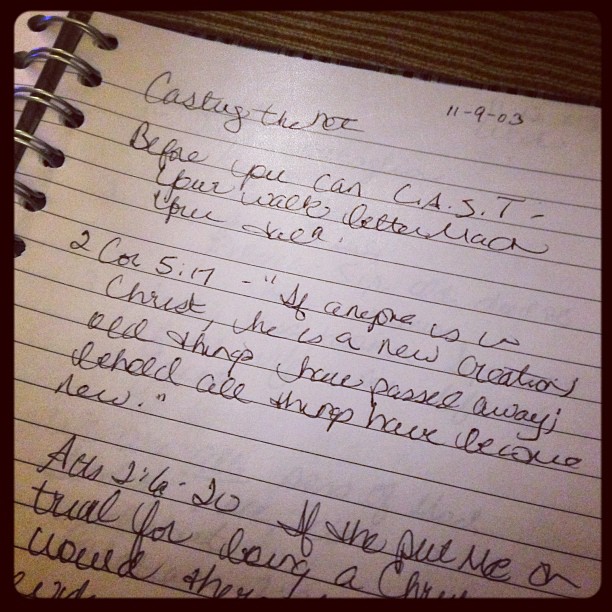 Casting the net
11-9-03
Before you can C.A.S.T-
your walk better Mach
your talk.
2 Cor 5:17 - "If anyone is in
Christ, he is a new creation
old things have passed away;
behold all things have become
new."
Acts 2:6-20 If the put me on
trial for being a Chris
would ther